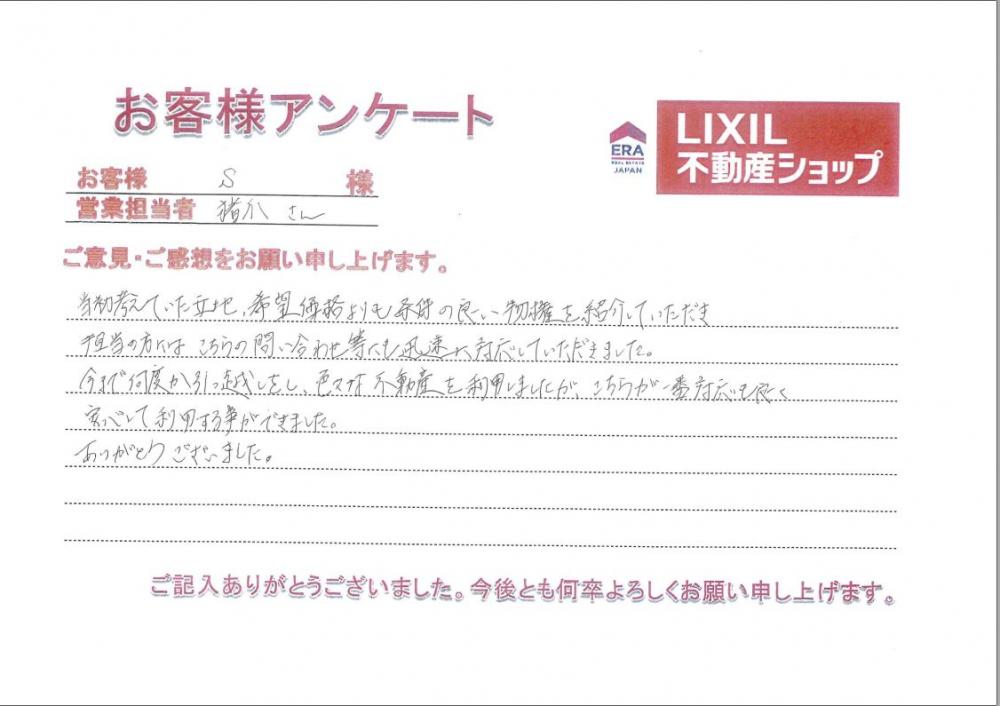 お客様アンケート
ERA
REAL ESTATE
JAPAN
LIXIL
不動産ショップ
お客様 S 様
営業担当者 猪爪 さん
ご意見・ご感想をお願い申し上げます。
当初考えていた立地、希望価格よりも条件の良い物権を紹介していただき
担当の方には こちらの問い合わせ等にも迅速に対応していただきました。
今まで何度か引っ越しをし、色々な不動産を利用しましたが、こちらが一番対応も良く
安心して利用する事ができました。
ありがとうございました。
ご記入ありがとうございました。今後とも何卒よろしくお願い申し上げます。